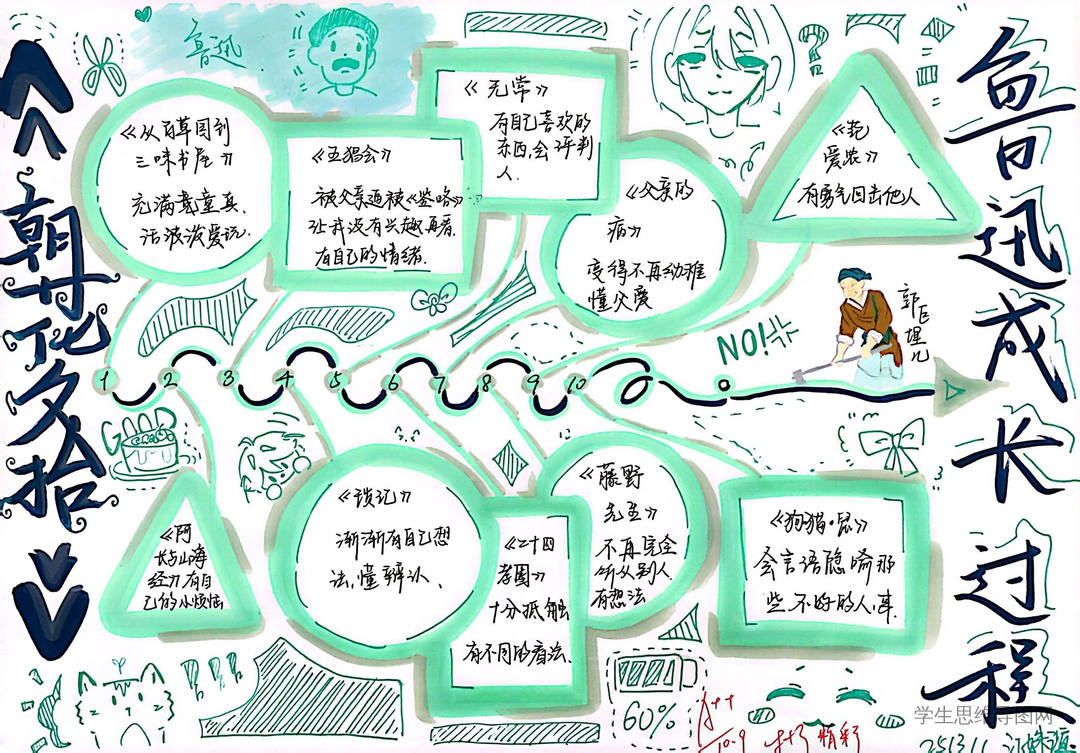 朝花夕拾
鲁迅成长过程
鲁迅
《从百草园到
三味书屋》
充满着童真,
活泼爱玩.
《五猖会》
被父亲逼被《鉴略》
让我没有兴趣再看.
有自己的情绪.
《无常》
有自己喜欢的
东西,会评判
人.
《父亲的
病》
变得不再幼稚
懂父爱
有勇气回击他人
NO!
郭巨埋儿
1 2 3 4 5 6 7 8 9 10
GOOD
《阿
长与山海
经》有自
己的小烦恼
《琐记》
渐渐有自己想
法,懂辨认.
《二十四
孝图》
十分抵触
有不同的看法.
《藤野
先生》
不再完全
听从别人
有想法
《狗·猫·鼠》
会言语隐喻那
些不好的人,事.
60%
A++
10.9
精彩
学生思维导图网